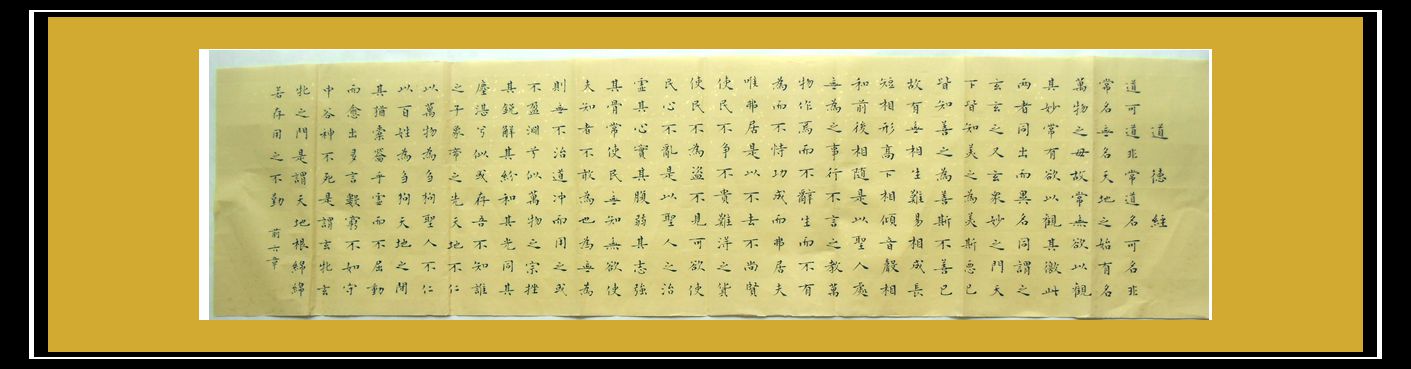 道德經
道可道非常道名可名非
常名無名天地之始有名
萬物之母故常無欲以觀
其妙常有欲以觀其徼此
兩者同出而異名同謂之
玄玄之又玄衆妙之門天
下皆知美之為美斯惡已
皆知善之為善斯不善已
故有無相生難易相成長
短相形高下相傾音聲相
和前後相隨是以聖人處
無為之事行不言之教萬
物作焉而不辭生而不有
為而不恃功成而弗居夫
唯弗居是以不去不尚賢
使民不爭不貴難淂之貨
使民不為盜不見可欲使
民心不亂是以聖人之治
虛其心實其腹弱其志強
其骨常使民無知無欲使
夫知者不敢為也為無為
則無不治道冲而用之或
不盈淵兮似萬物之宗挫
其銳解其紛和其光同其
塵湛兮似或存吾不知誰
之子象帝之先天地不仁
以萬物為芻狗聖人不仁
以百姓為芻狗天地之間
其猶橐籥乎虛而不屈動
而愈出多言數窮不如守
中谷神不死是謂玄牝玄
牝之門是謂天地根綿綿
若存用之不勤
前六章